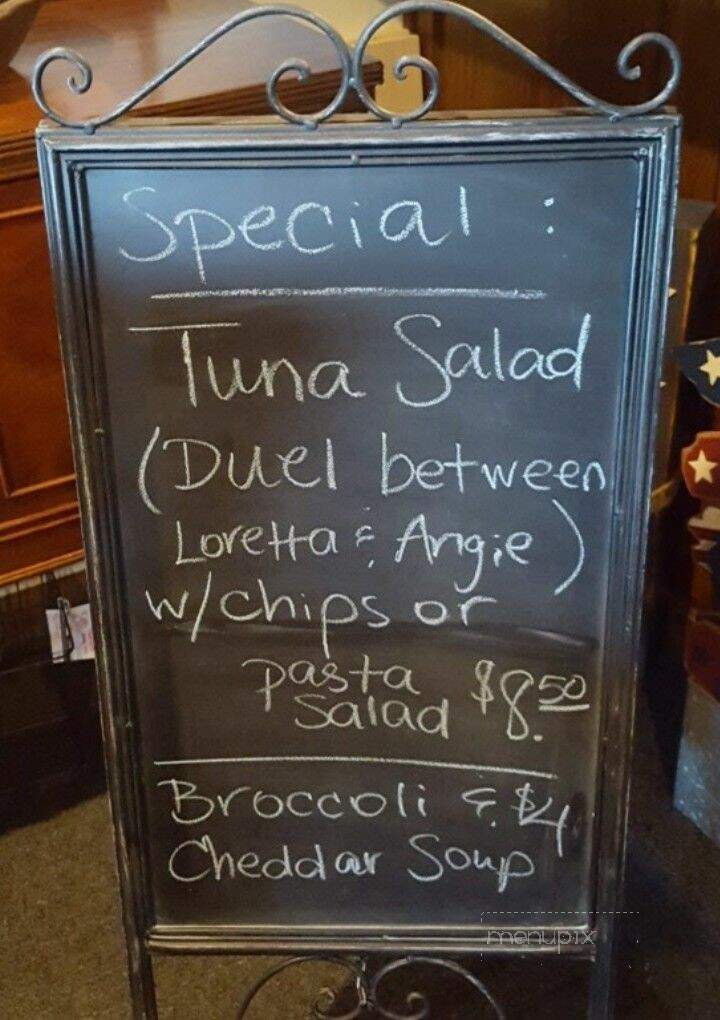 Special :
Tuna Salad
(Duel between
Loretta & Angie)
w/chips or
pasta $8.50
salad
Broccoli & $4
Cheddar Soup
menupix